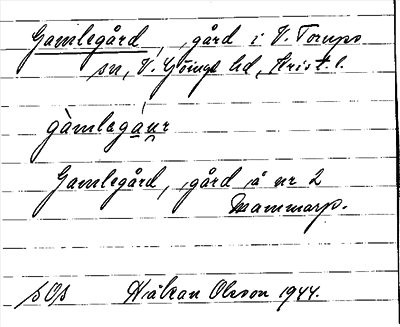 Gamlegård, gård i V. Torups
sn, V. Göinge hd, Krist. l.
gàmlegáu̯r
Gamlegård, gård å nr 2
Mammarp.
SOs Håkan Olsson 1944.